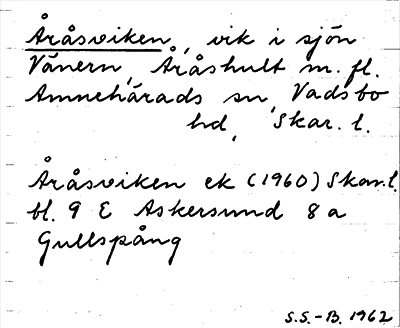 Åråsviken, vik i sjön
Vänern, Åråshult m. fl.
Amnehärads sn, Vadsbo
hd, Skar. l.
Åråsviken ek (1960) Skar.l.
bl. 9 E Askersund 8 a
Gullspång
S.S.-B. 1962